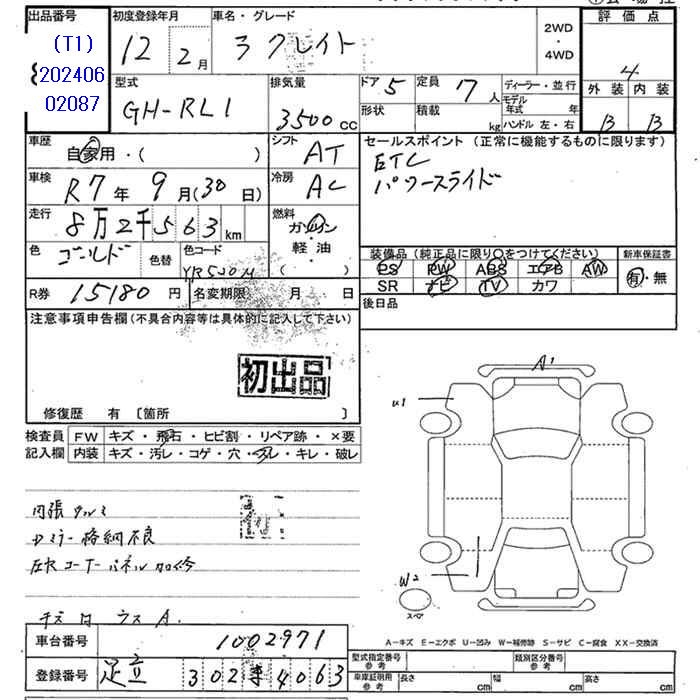 出品番号
(T1)
202406
02087
初度登録年月
12 2月
車名・グレード
ラグレイト
2WD
・
4WD
評価点
4
外装 内装
B B
型式
GH-RL1
排気量
3500cc
ドア 5
形状
定員 7人
積載 kg
ディーラー・並行
モデル年式 年
ハンドル 左・右
車歴
自家用・( )
シフト AT
車検
R7年 9月(30日)
冷房 AC
走行
8万2千563km
燃料
ガソリン
軽油
( )
色
ゴールド
色替
色コード
YR520M
R券 15180円
名変期限 月 日
セールスポイント(正常に機能するものに限ります)
ETC
パワースライド
装備品(純正品に限り○をつけてください)
PS PW ABS エアB AW
SR ナビ TV カワ
新車保証書
有・無
後日品
注意事項申告欄(不具合内容等は具体的に記入して下さい)
初出品
修復歴 有〔箇所 〕
検査員
記入欄
FW キズ・飛石・ヒビ割・リペア跡・×要
内装 キズ・汚レ・コゲ・穴・スレ・キレ・破レ
内張タルミ
Dミラー格納不良
左Rコーナーパネル加修
チズ 日 ウス A.
A1
U1
W2
スペア
A-キズ E-エクボ U-凹み W-補修跡 S-サビ C-腐食 XX-交換済
車台番号 1002971
登録番号 足立 302 4063
型式指定番号
参考
類別区分番号
参考
車庫証明用
参考
長さ cm
幅 cm
高さ cm